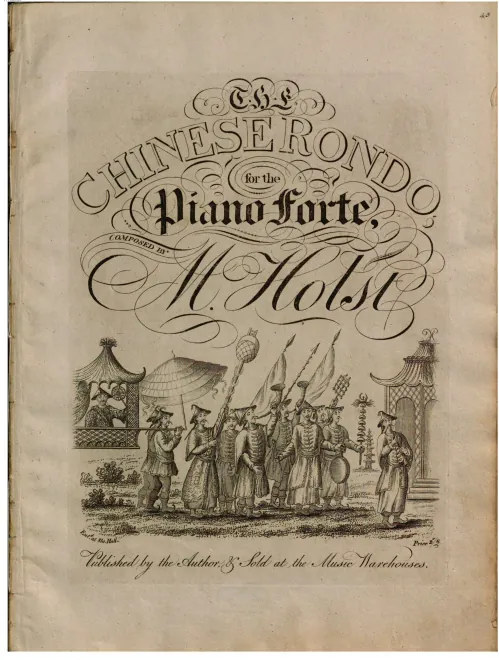 43
THE
CHINESE RONDO,
for the
Piano Forte,
COMPOSED BY
M. Holst
Price
Published by the Author, & Sold at the Music Warehouses.